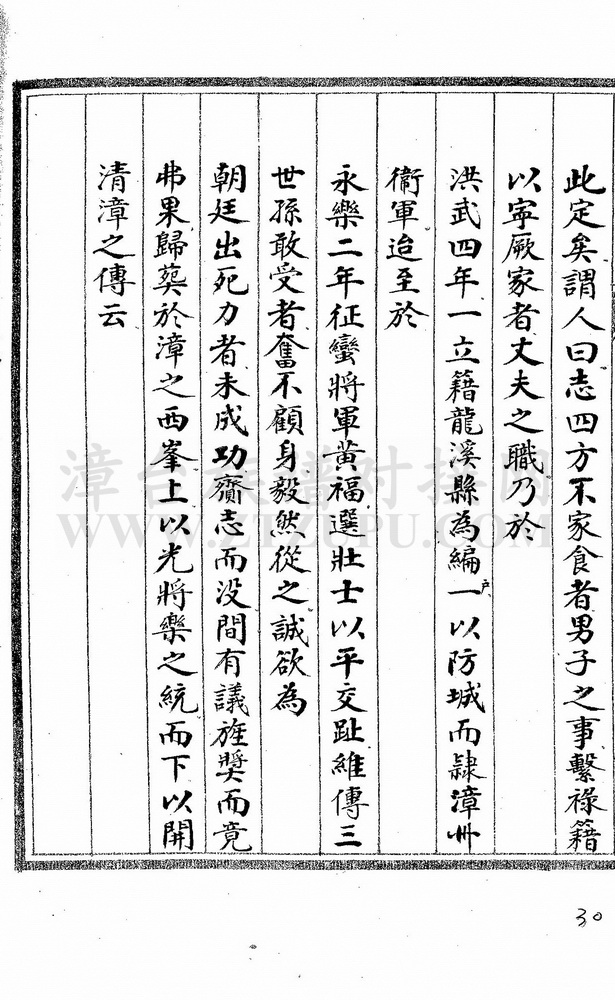 此定矣謂人曰志四方不家食者男子之事繫祿籍
以寧厥家者丈夫之職乃於
洪武四年一立籍龍溪縣為編戶一以防城而隸漳州
衛軍迨至於
永樂二年征蠻將軍黃福選壯士以平交趾維傳三
世孫敢受者奮不顧身毅然從之誠欲為
朝廷出死力者未成功齎志而没間有議旌獎而竟
弗果歸葬於漳之西峯上以光將樂之統而下以開
清漳之傳云
漳台族譜对接网
WWW.ZTZUPU.COM
30